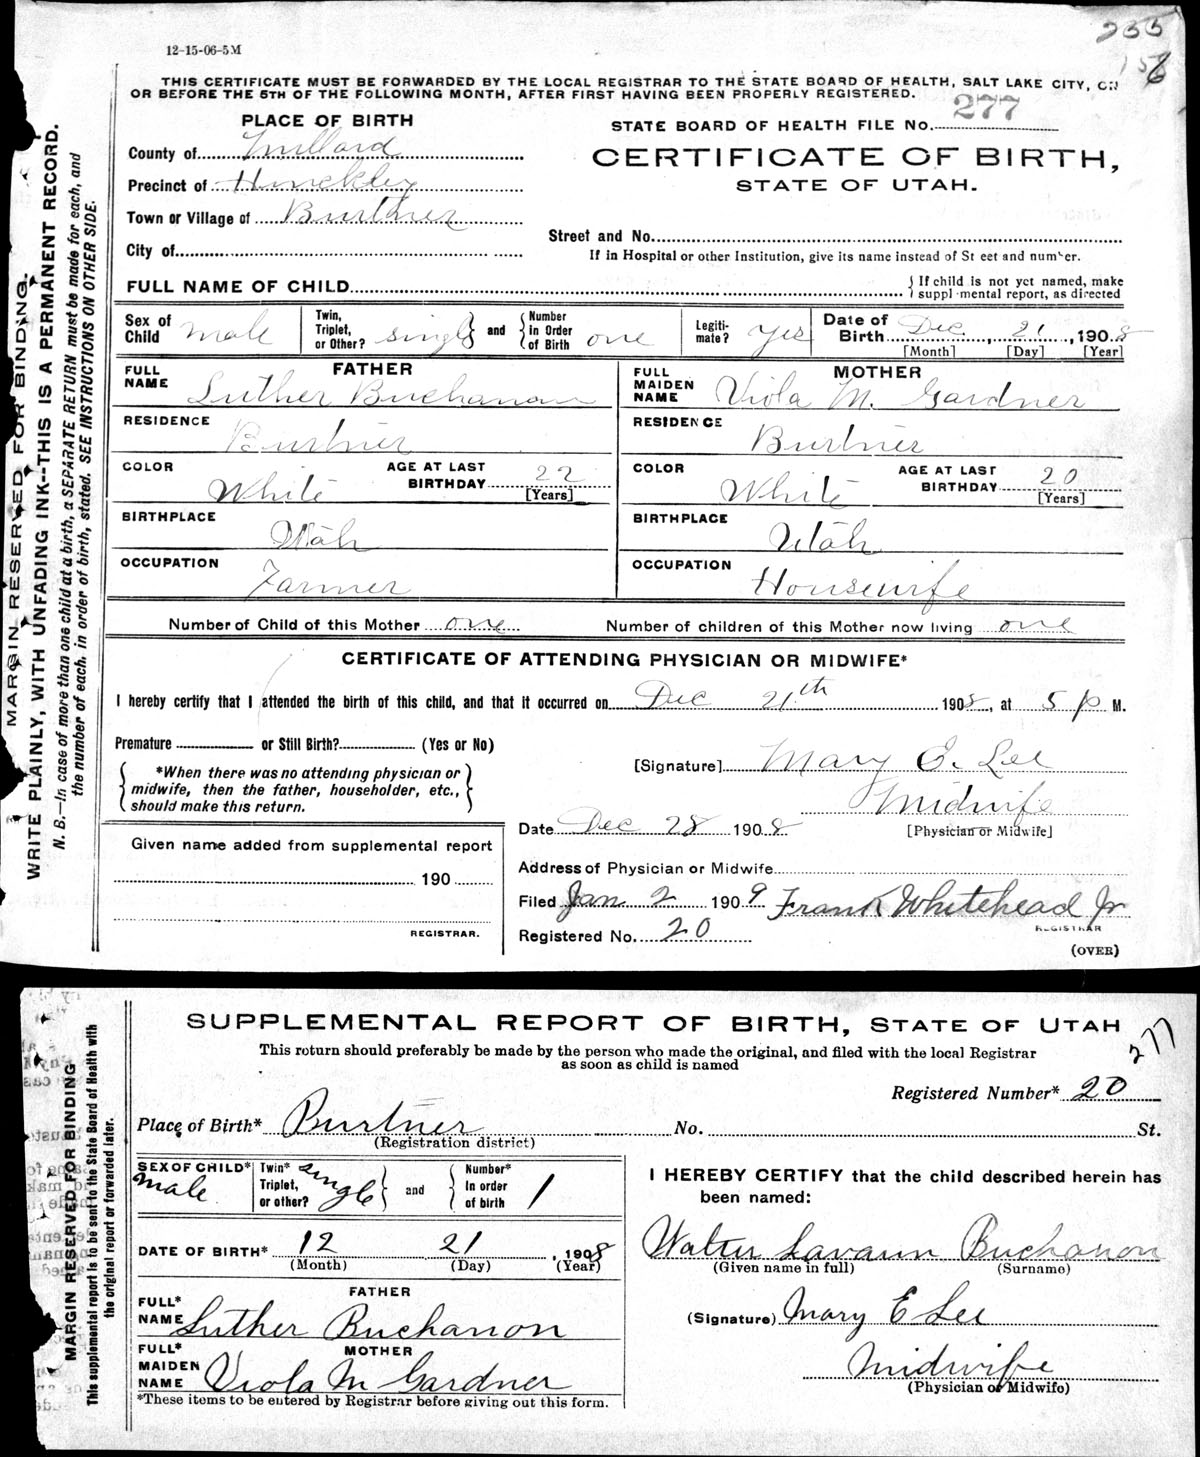 255
156
12-15-06-5M
THIS CERTIFICATE MUST BE FORWARDED BY THE LOCAL REGISTRAR TO THE STATE BOARD OF HEALTH, SALT LAKE CITY, ON
OR BEFORE THE 5TH OF THE FOLLOWING MONTH, AFTER FIRST HAVING BEEN PROPERLY REGISTERED.
PLACE OF BIRTH
STATE BOARD OF HEALTH FILE No. 277
County of Millard
CERTIFICATE OF BIRTH,
Precinct of Hinckley
STATE OF UTAH.
Town or Village of Burtner
Street and No.
City of
If in Hospital or other Institution, give its name instead of St eet and number.
FULL NAME OF CHILD
If child is not yet named, make
suppl mental report, as directed
Sex of Child male Twin, Triplet, or Other? single and Number in Order of Birth one Legiti-mate? yes Date of Birth Dec, 21, 1908
[Month] [Day] [Year]
FATHER
MOTHER
FULL NAME Luther Buchanan
FULL MAIDEN NAME Viola M. Gardner
RESIDENCE Burtner
RESIDENCE Burtner
COLOR White AGE AT LAST BIRTHDAY 22 [Years]
COLOR White AGE AT LAST BIRTHDAY 20 [Years]
BIRTHPLACE Utah
BIRTHPLACE Utah
OCCUPATION Farmer
OCCUPATION Housewife
Number of Child of this Mother one Number of children of this Mother now living one
CERTIFICATE OF ATTENDING PHYSICIAN OR MIDWIFE*
I hereby certify that I attended the birth of this child, and that it occurred on Dec 21th 1908, at 5 p M.
Premature or Still Birth? (Yes or No)
*When there was no attending physician or
midwife, then the father, householder, etc.,
should make this return.
[Signature] Mary E. Lee
Midwife
[Physician or Midwife]
Date Dec 28 1908
Given name added from supplemental report
190
REGISTRAR.
Address of Physician or Midwife
Filed Jan 2 1909 Frank Whitehead Jr
REGISTRAR
Registered No. 20
(OVER)
MARGIN RESERVED FOR BINDING.
WRITE PLAINLY, WITH UNFADING INK--THIS IS A PERMANENT RECORD.
N. B.—In case of more than one child at a birth, a SEPARATE RETURN must be made for each, and
the number of each, in order of birth, stated. SEE INSTRUCTIONS ON OTHER SIDE.
SUPPLEMENTAL REPORT OF BIRTH, STATE OF UTAH
277
This return should preferably be made by the person who made the original, and filed with the local Registrar
as soon as child is named
Registered Number* 20
Place of Birth* Burtner No. St.
(Registration district)
SEX OF CHILD* male Twin* Triplet, or other? single and Number* In order of birth 1
DATE OF BIRTH* 12 21, 1908
(Month) (Day) (Year)
FATHER
FULL* NAME Luther Buchanon
MOTHER
FULL* MAIDEN NAME Viola M Gardner
*These items to be entered by Registrar before giving out this form.
I HEREBY CERTIFY that the child described herein has
been named:
Walter Lavaun Buchanon
(Given name in full) (Surname)
(Signature) Mary E Lee
Midwife
(Physician or Midwife)
MARGIN RESERVED FOR BINDING
This supplemental report is to be sent to the State Board of Health with
the original report or forwarded later.